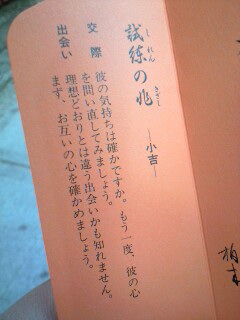 試練の兆 ―小吉―
しれん きざし
交際 彼の気持ちは確かですか。もう一度、彼の心
を問い直してみましょう。
出会い 理想どおりとは違う出会いかも知れません。
まず、お互いの心を確かめましょう。
柏木